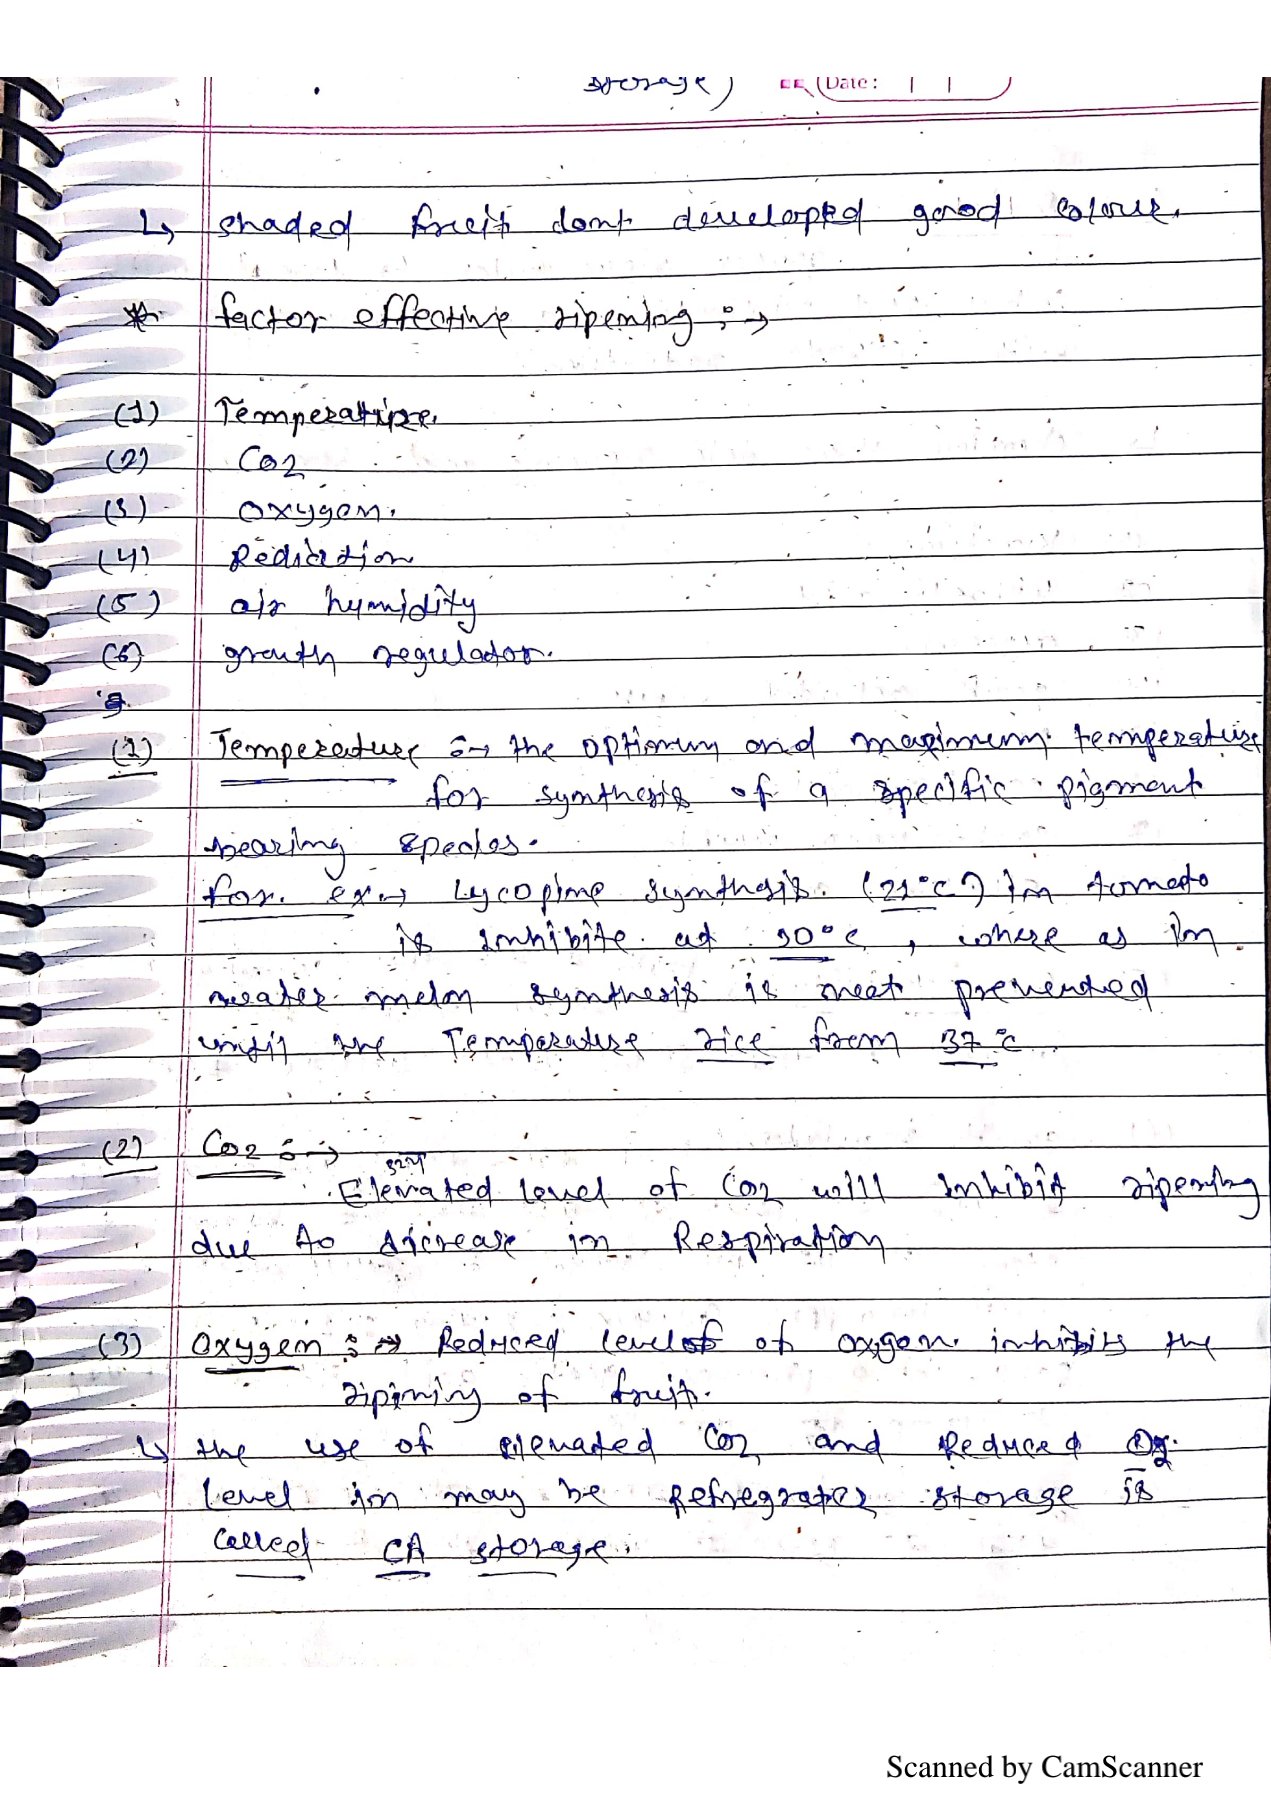 storage)
Date :
↳ shaded fruit dont developed good colour.
* factor effective ripening :→
(1) Temperature.
(2) Co2
(3) Oxygen.
(4) Rediation
(5) air humidity
(6) growth regulator.
(1) Temperature :→ the optimum and maximum temperature
for synthesis of a specific pigment
bearing species.
for. ex → Lycopine synthesis. (21°C) in tomato
is inhibite at 30°c, where as in
water melon synthesis is not prevented
until the Temperature rice from 37°c
(2) Co2 :→
Elevated level of Co2 will inhibit ripening
due to dicrease in Respiration
(3) Oxygen :→ Reduced level of oxigen inhibits the
ripining of fruit.
↳ the use of elevated Co2 and Reduced O2
level in may be Refregrator storage is
called CA storage.
Scanned by CamScanner